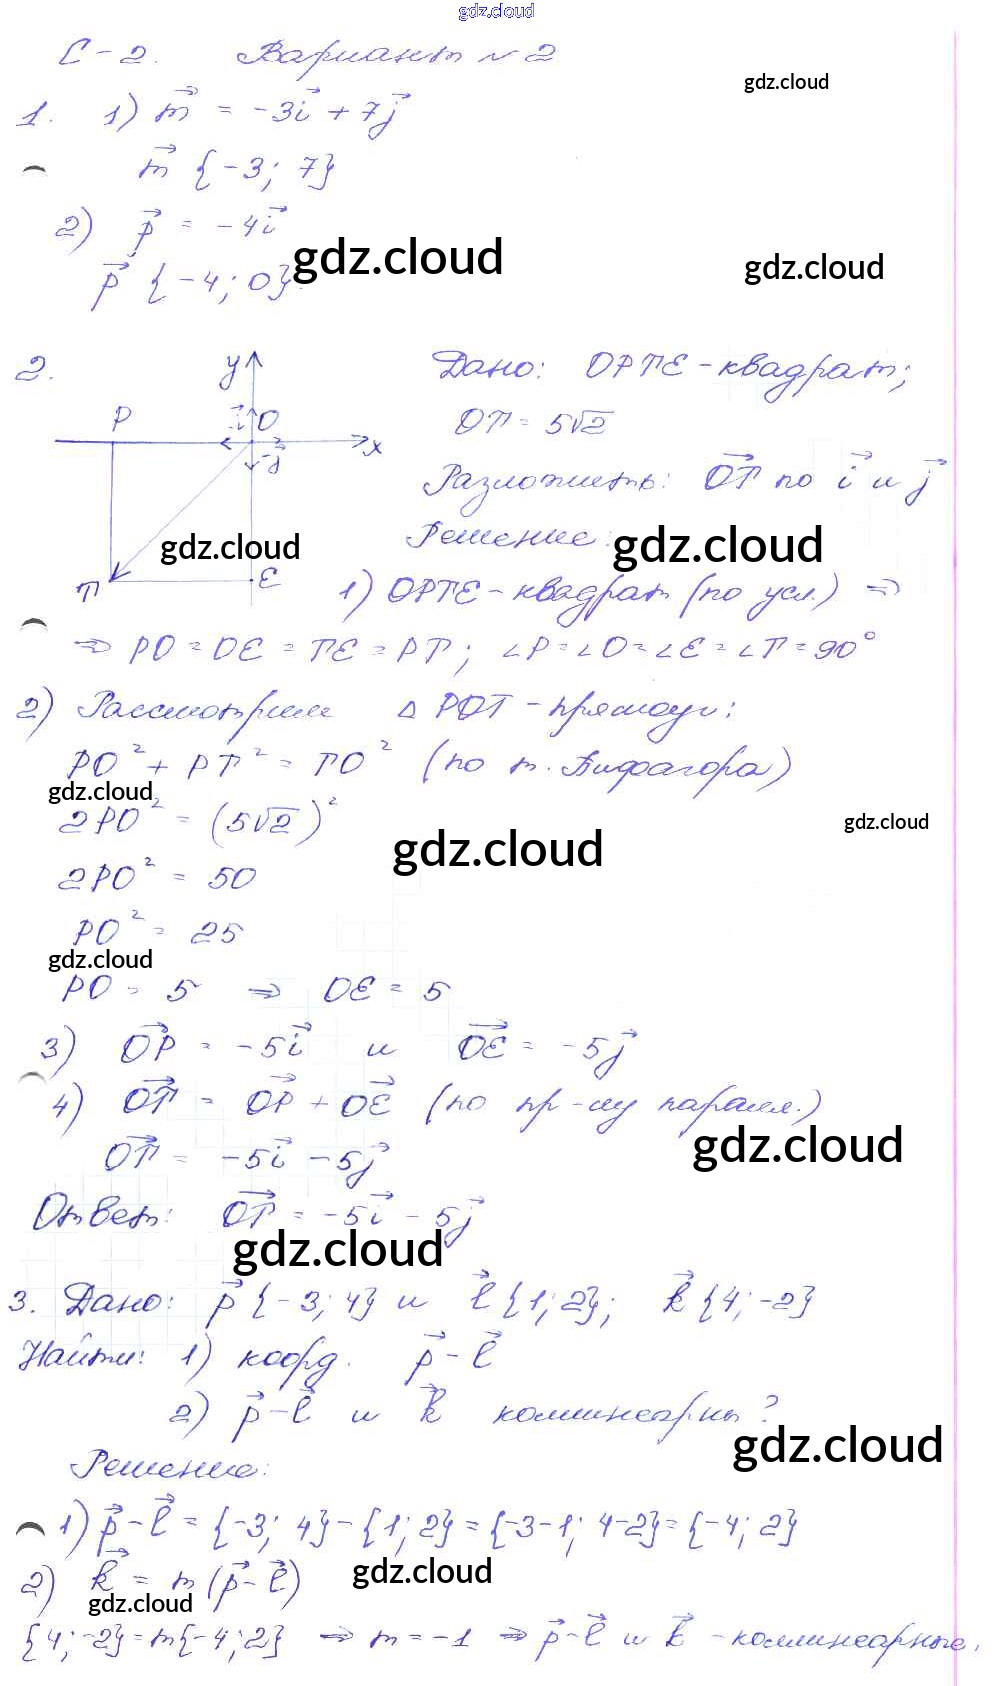 gdz.cloud
С-2. Вариант №2
gdz.cloud
1. 1) m⃗ = -3i⃗ + 7j⃗
m⃗ {-3; 7}
2) p⃗ = -4i⃗
gdz.cloud gdz.cloud
p⃗ {-4; 0}.
2. y Дано: OPTE - квадрат;
P i⃗ O x
-j⃗
OT = 5√2
Разложить: OT⃗ по i⃗ и j⃗
Решение:
gdz.cloud gdz.cloud
T E
1) OPTE - квадрат (по усл.) ⇒
⇒ PO = OE = TE = PT; ∠P = ∠O = ∠E = ∠T = 90°
2) Рассмотрим △ POT - прямоуг:
PO² + PT² = TO² (по т. Пифагора)
gdz.cloud
2PO² = (5√2)²
gdz.cloud
gdz.cloud
2PO² = 50
PO² = 25
gdz.cloud
PO = 5 ⇒ OE = 5
3) OP⃗ = -5i⃗ и OE⃗ = -5j⃗
4) OT⃗ = OP⃗ + OE⃗ (по пр-лу паралл.)
gdz.cloud
OT⃗ = -5i⃗ - 5j⃗
Ответ: OT⃗ = -5i⃗ - 5j⃗
gdz.cloud
3. Дано: p⃗ {-3; 4} и l⃗ {1; 2}; k⃗ {4; -2}
Найти: 1) коорд. p⃗ - l⃗
2) p⃗ - l⃗ и k⃗ коллинеарны?
gdz.cloud
Решение:
1) p⃗ - l⃗ = {-3; 4} - {1; 2} = {-3-1; 4-2} = {-4; 2}
2) k⃗ = m (p⃗ - l⃗)
gdz.cloud
gdz.cloud
{4; -2} = m{-4; 2} ⇒ m = -1 ⇒ p⃗ - l⃗ и k⃗ - коллинеарные.